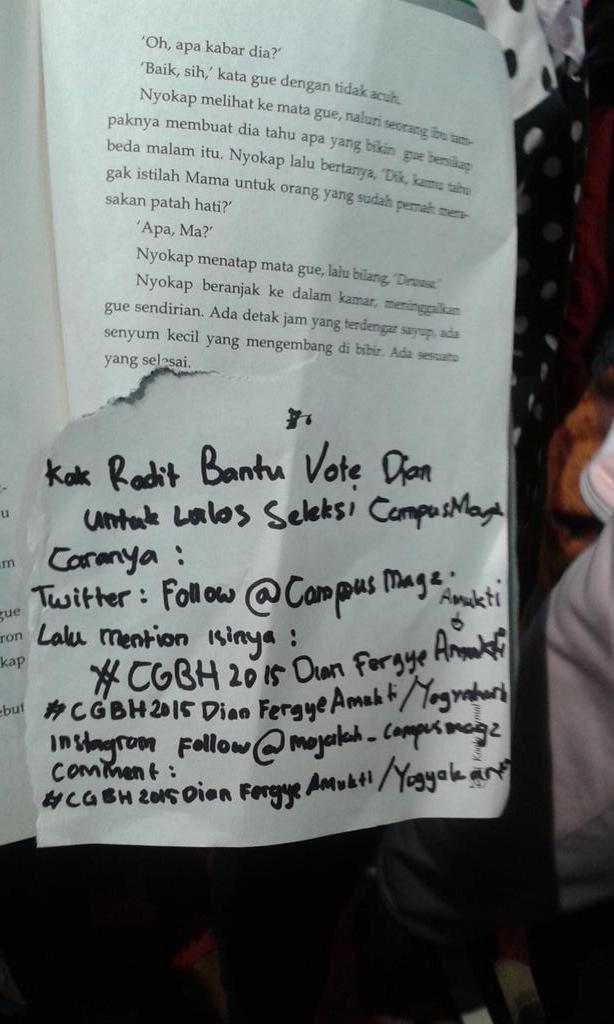 'Oh, apa kabar dia?'
'Baik, sih,' kata gue dengan tidak acuh.
Nyokap melihat ke mata gue, naluri seorang ibu tam-
paknya membuat dia tahu apa yang bikin gue bersikap
beda malam itu. Nyokap lalu bertanya, 'Dik, kamu tahu
gak istilah Mama untuk orang yang sudah pernah mera-
sakan patah hati?'
'Apa, Ma?'
Nyokap menatap mata gue, lalu bilang, 'Dewasa.'
Nyokap beranjak ke dalam kamar, meninggalkan
gue sendirian. Ada detak jam yang terdengar sayup, ada
senyum kecil yang mengembang di bibir. Ada sesuatu
yang selesai.
Kak Radit Bantu Vote Dian
untuk Lolos Seleksi CampusMagz
Caranya :
Twitter : Follow @Campusmagz.
Amukti
Lalu mention isinya :
#CGBH2015 Dian Fergye
#CGBH2015 Dian Fergye Amukti/Yogyakarta
Instagram Follow @majalah_campusmagz
Comment :
#CGBH2015 Dian Fergye Amukti/Yogyakarta
u
m
gue
ron
kap
ebut